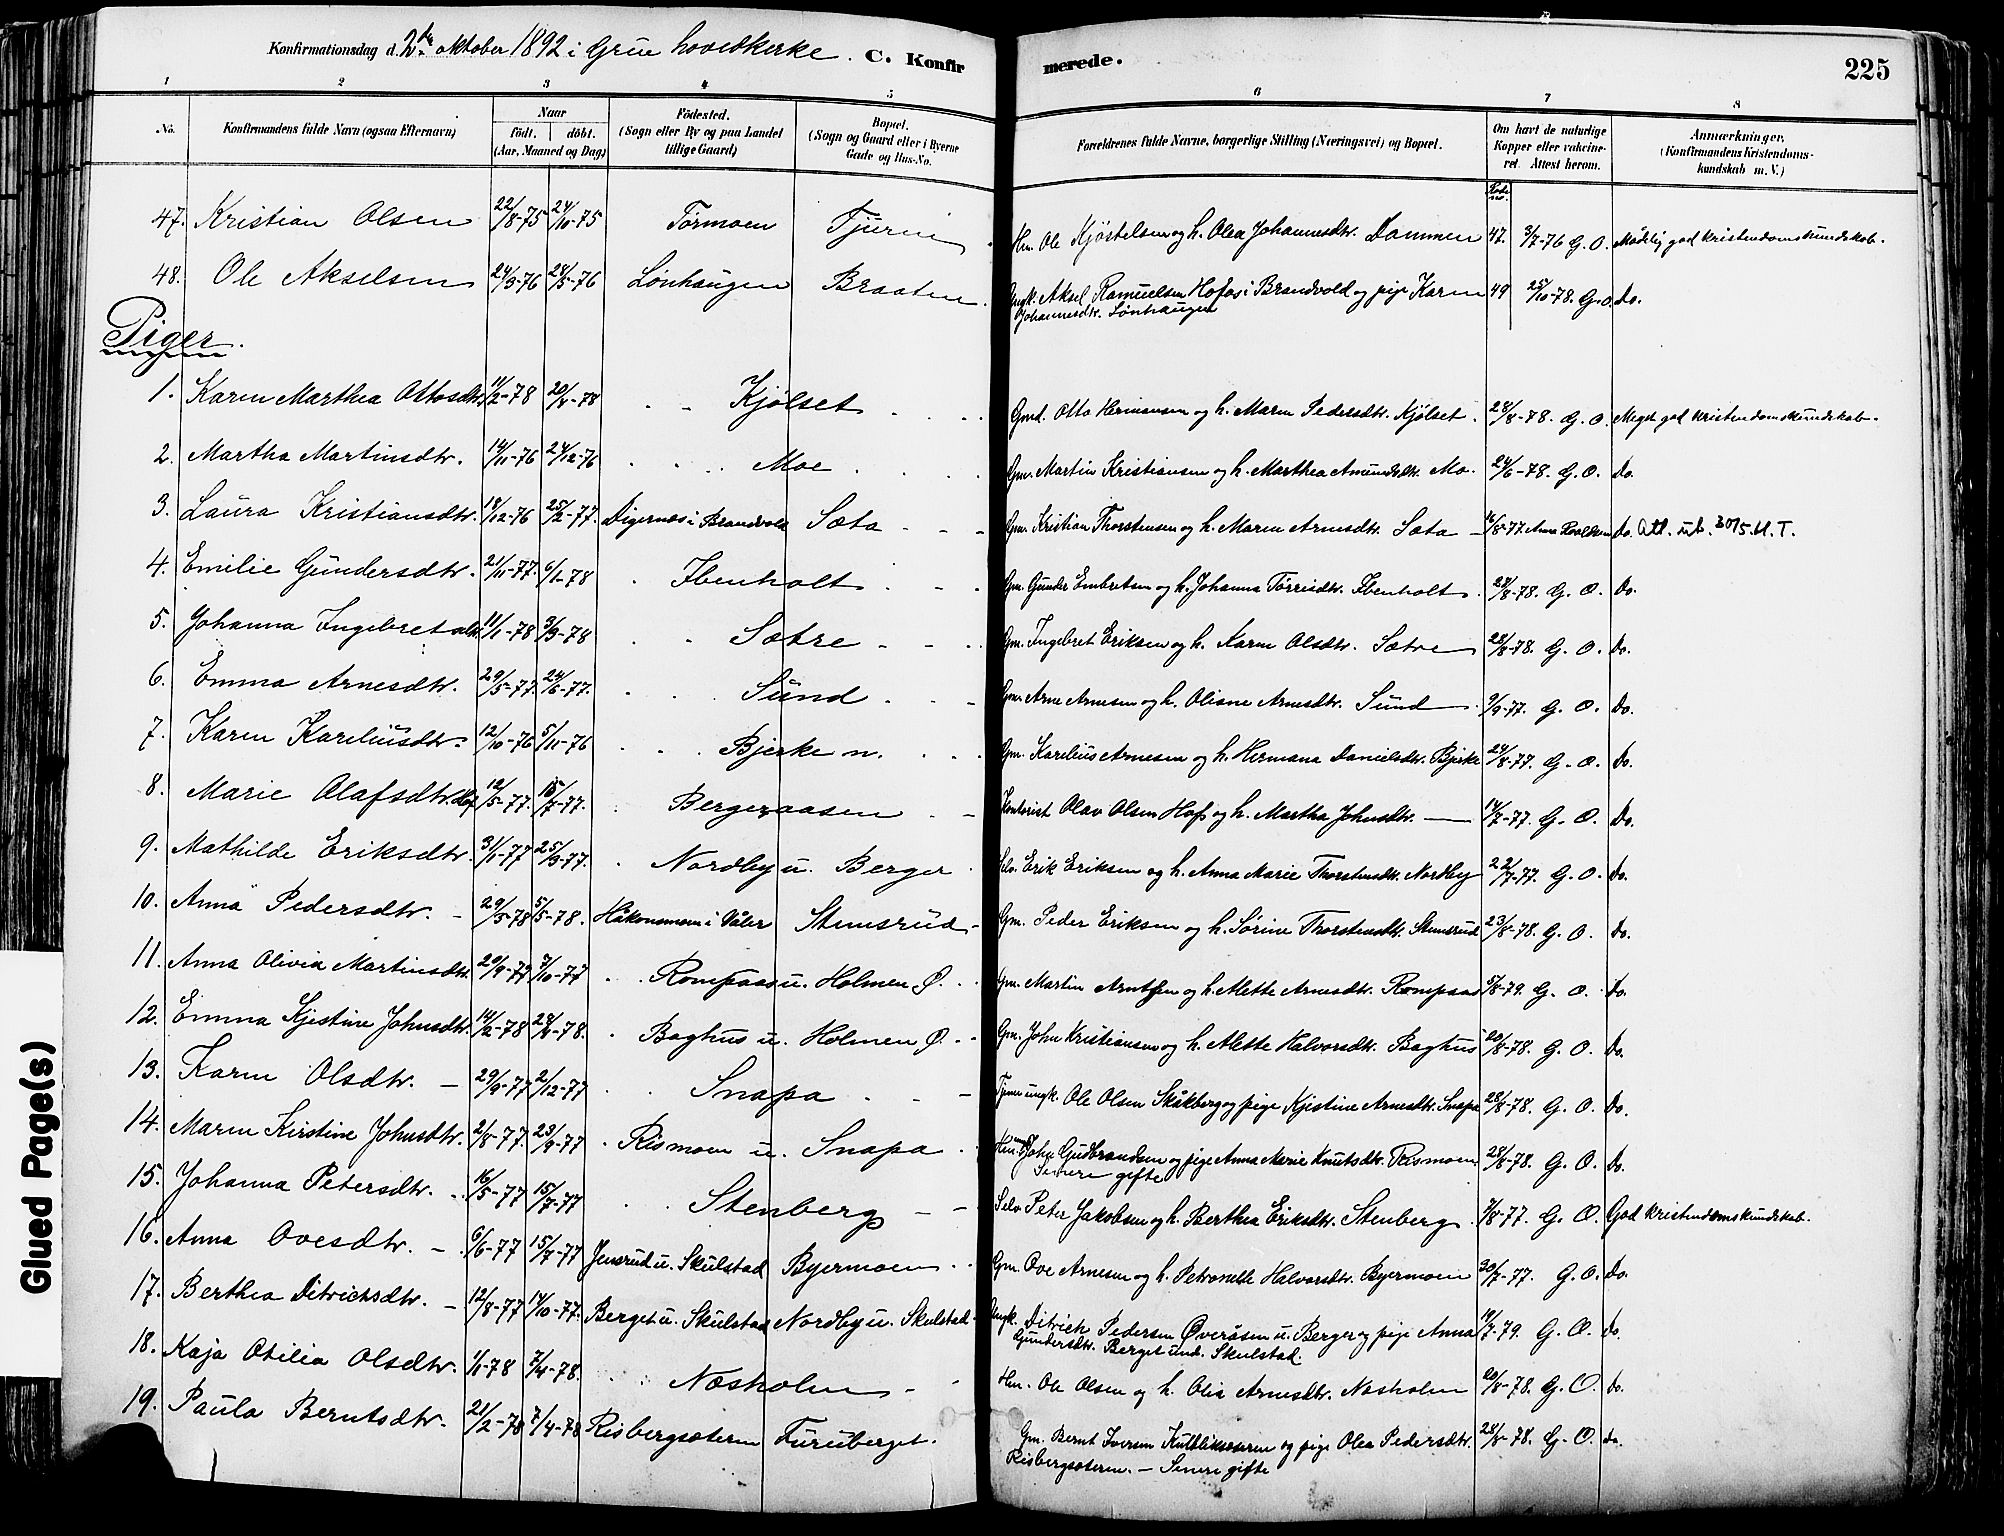 Konfirmationsdag d. 2den oktober 1892 i Grue hovedkerke. C. Konfirmerede. 225
1 2 3 4 5 6 7 8
No. Konfirmandens fulde Navn (ogsaa Efternavn) Naar født. døbt. (Aar, Maaned og Dag) Fødested. (Sogn eller By og paa Landet tillige Gaard) Bopæl. (Sogn og Gaard eller i Byerne Gade og Hus-No. Forældrenes fulde Navne, borgerlige Stilling (Næringsvei) og Bopæl. Om havt de naturlige Kopper eller vakcineret. Attest herom. Anmærkninger, (Konfirmandens Kristendomskundskab m. V.)
47. Kristian Olsen 22/8-75 24/10-75 Tørmoen Tjurin Hm. Ole Kjøstelsen og h. Olea Johannesdtr. Dammen 47. 3/7-76 G. O. Mådelig god kristendomskundskab.
48. Ole Akselsen 24/3-76 28/5-76 Lønhaugen Braaten. Ungk. Aksel Ramuelsen Hofos i Brandvold og pige Karen 49 25/10-78. G. O. Do.
Johannesdtr. Lønhaugen
Piger.
1. Karen Marthea Ottosdtr. 11/2-78 20/4-78 Kjølset Gmd. Otto Hermansen og h. Maren Pedersdtr. Kjølset. 28/8-78. G. O. Meget god kristendomskundskab.
2. Martha Martinsdtr. 14/11-76 24/12-76 Moe Gm. Martin Kristiansen og h. Marthea Amundsdtr. Mo. 24/6-78. G. O. Do.
3. Laura Kristiansdtr. 18/12-76 25/2-77. Digernæs i Brandvold Sæta Gm. Kristian Thorstensen og h. Maren Arnesdtr. Sæta 16/8-77. Anna Roaldsen Do. Att. ut. 30/5.41. T.
4. Emilie Gundersdtr. 21/11-77. 6/1-78 Ibenholt Gm. Gunder Embretsen og h. Johanna Tørrisdtr. Ibenholt. 28/8-78. G. O. Do.
5. Johanna Ingebretsdtr. 11/1-78 3/3-78 Sætre Gm. Ingebret Eriksen og h. Karen Olsdtr. Sætre 28/8-78. G. O. Do.
6. Emma Arnesdtr. 29/5-77. 24/6-77. Sund Gm. Arne Arnesen og h. Olisne Arnesdtr. Sund 9/9-77. G. O. Do.
7. Karen Kareliusdtr. 12/10-76 5/11-76 Bjerke n. Gm. Karelius Arnesen og h. Hermana Danielsdtr. Bjerke 24/8-77. G. O. Do.
8. Marie Olafsdtr. Hof 12/5-77. 15/7-77. Bergeraasen Kontorist Olav Olsen Hof og h. Martha Johnsdtr. — 14/7-77. G. O. Do.
9. Mathilde Eriksdtr. 31/1-77 25/3-77. Nordby u. Berger Selv. Erik Eriksen og h. Anna Marie Thorstensdtr. Nordby 22/7-77. G. O. Do.
10. Anna Pedersdtr. 29/3-78 5/5-78. Håkonsmoen i Våler Stemsrud Gm. Peder Eriksen og h. Sørine Thorstensdtr. Stemsrud 23/8-78. G. O. Do.
11. Anna Olivia Martinsdtr. 20/9-77 7/10-77 Rompaas u. Holmen Ø. Gm. Martin Arntsen og h. Alette Arnesdtr. Rompaas 5/8-79. G. O. Do.
12. Emma Kjestine Johnsdtr. 14/2-78 28/4-78. Baghus u. Holmen Ø. Gm. John Kristiansen og h. Alette Halvorsdtr. Baghus 20/8-78. G. O. Do.
13. Karen Olsdtr. 29/9-77 2/12-77 Snapa Tjener ungk. Ole Olsen Skåkberg og pige Kjestine Arnesdtr. Snapa 28/8-78. G. O. Do.
14. Maren Kirstine Johnsdtr. 2/8-77. 23/9-77 Rismoen u. Snapa Hm. John Gudbrandsen og pige Anna Marie Knutsdtr. Rismoen. 28/8-78. G. O. Do.
Senere gifte
15. Johanna Petersdtr. 16/5-77 15/7-77 Stenberg Selv. Peter Jakobsen og h. Berthea Eriksdtr. Stenberg 7/8-77. G. O. God kristendomskundskab.
16. Anna Ovesdtr. 6/6-77 15/7-77 Jensrud u. Skulstad Byermoen Gm. Ove Arnesen og h. Petronelle Halvorsdtr. Byermoen 30/7-77. G. O. Do.
17. Berthea Ditrichsdtr. 12/8-77 14/10-77. Berget u. Skulstad Nordby u. Skulstad Ungk. Ditrich Pedersen Øveråsen u. Berger og pige Anna 18/7-79. G. O. Do.
Gundersdtr. Berget und. Skulstad.
18. Kaja Otilia Olsdtr. 1/1-78 7/4-78. Næsholen Hm. Ole Olsen og h. Olia Arnesdtr. Næsholen 20/8-78. G. O. Do.
19. Paula Berntsdtr. 21/2-78 7/4-78 Risbergsæteren Furuberget. Gm. Bernt Iversen Kulblikseteren og pige Olea Pedersdtr. 28/8-78. G. O. Do.
Risbergsæteren. — Senere gifte
Glued Page(s)